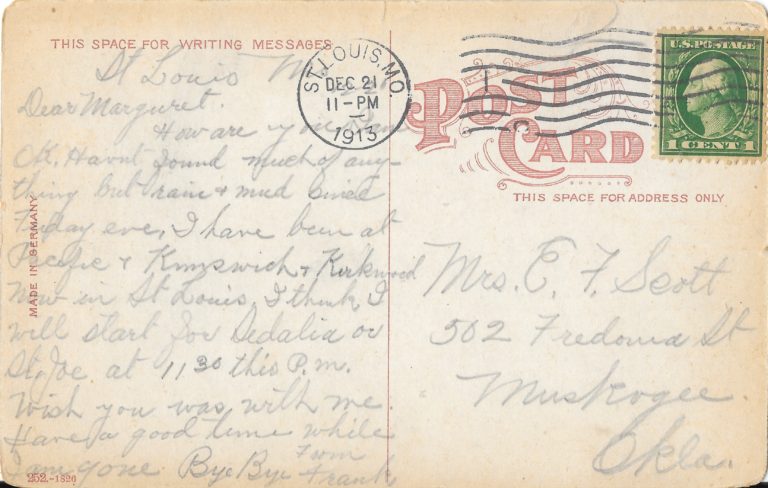 THIS SPACE FOR WRITING MESSAGES
St Louis Mo
Dear Marguret.
How are you
OK, Havnt found much of any-
thing but rain & mud since
Friday eve, I have been at
Pacific & Kimswich & Kirkwood
Now in St Louis, I think I
will start for Sedalia or
St, Joe at 11 30 this P.m.
Wish you was with me
Have a good time while
I am gone Bye Bye From
Frank
MADE IN GERMANY
252.-1826
ST. LOUIS, MO.
DEC 21
11-PM
1913
POST
CARD
THIS SPACE FOR ADDRESS ONLY
U.S. POSTAGE
1 CENT 1
Mrs. E. F. Scott
502 Fredonia St
Muskogee.
Okla.